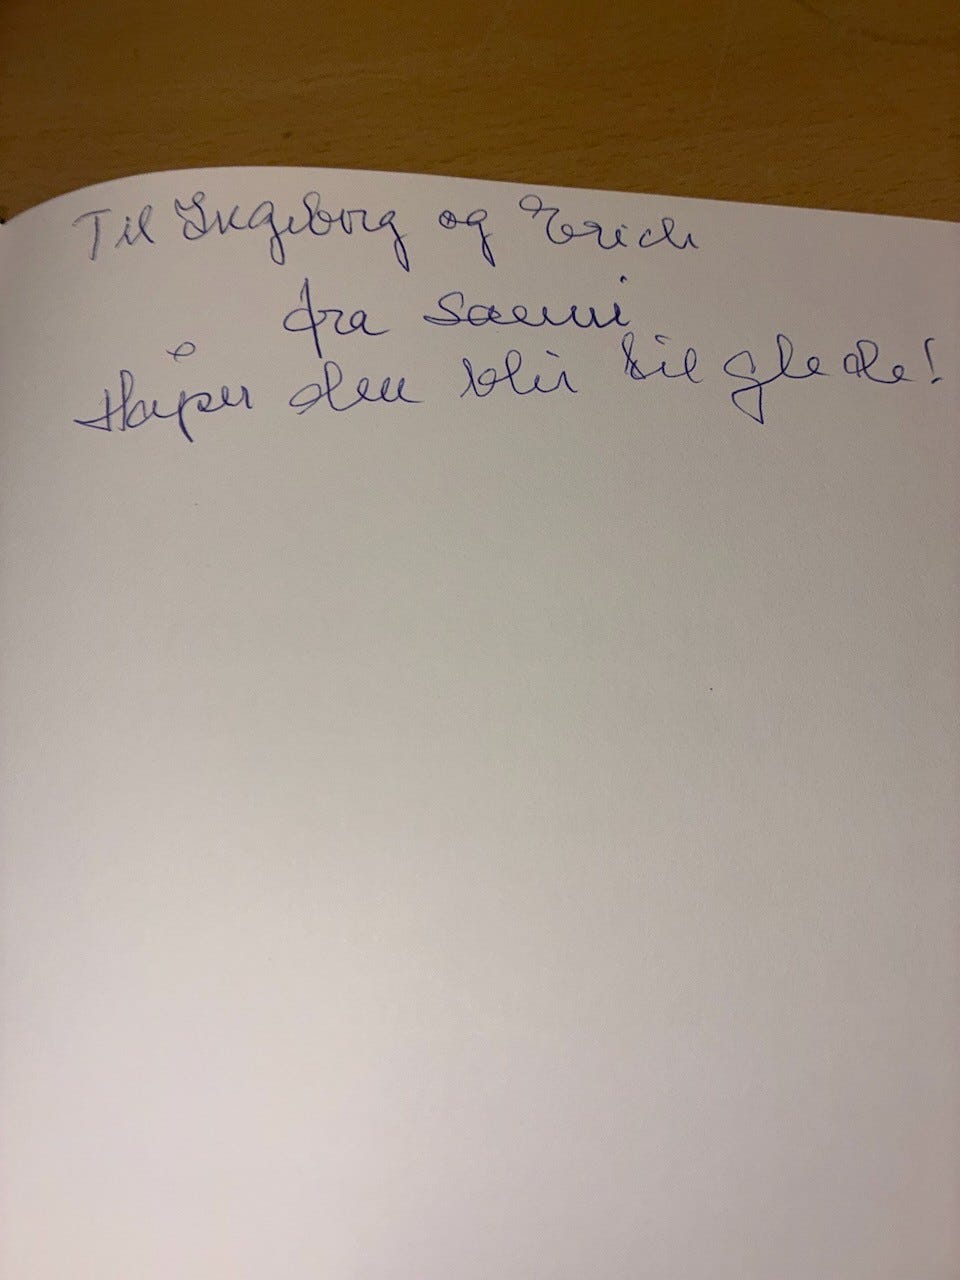 Til Ingeborg og Erich
fra Saemi
Håper den blir til glede!